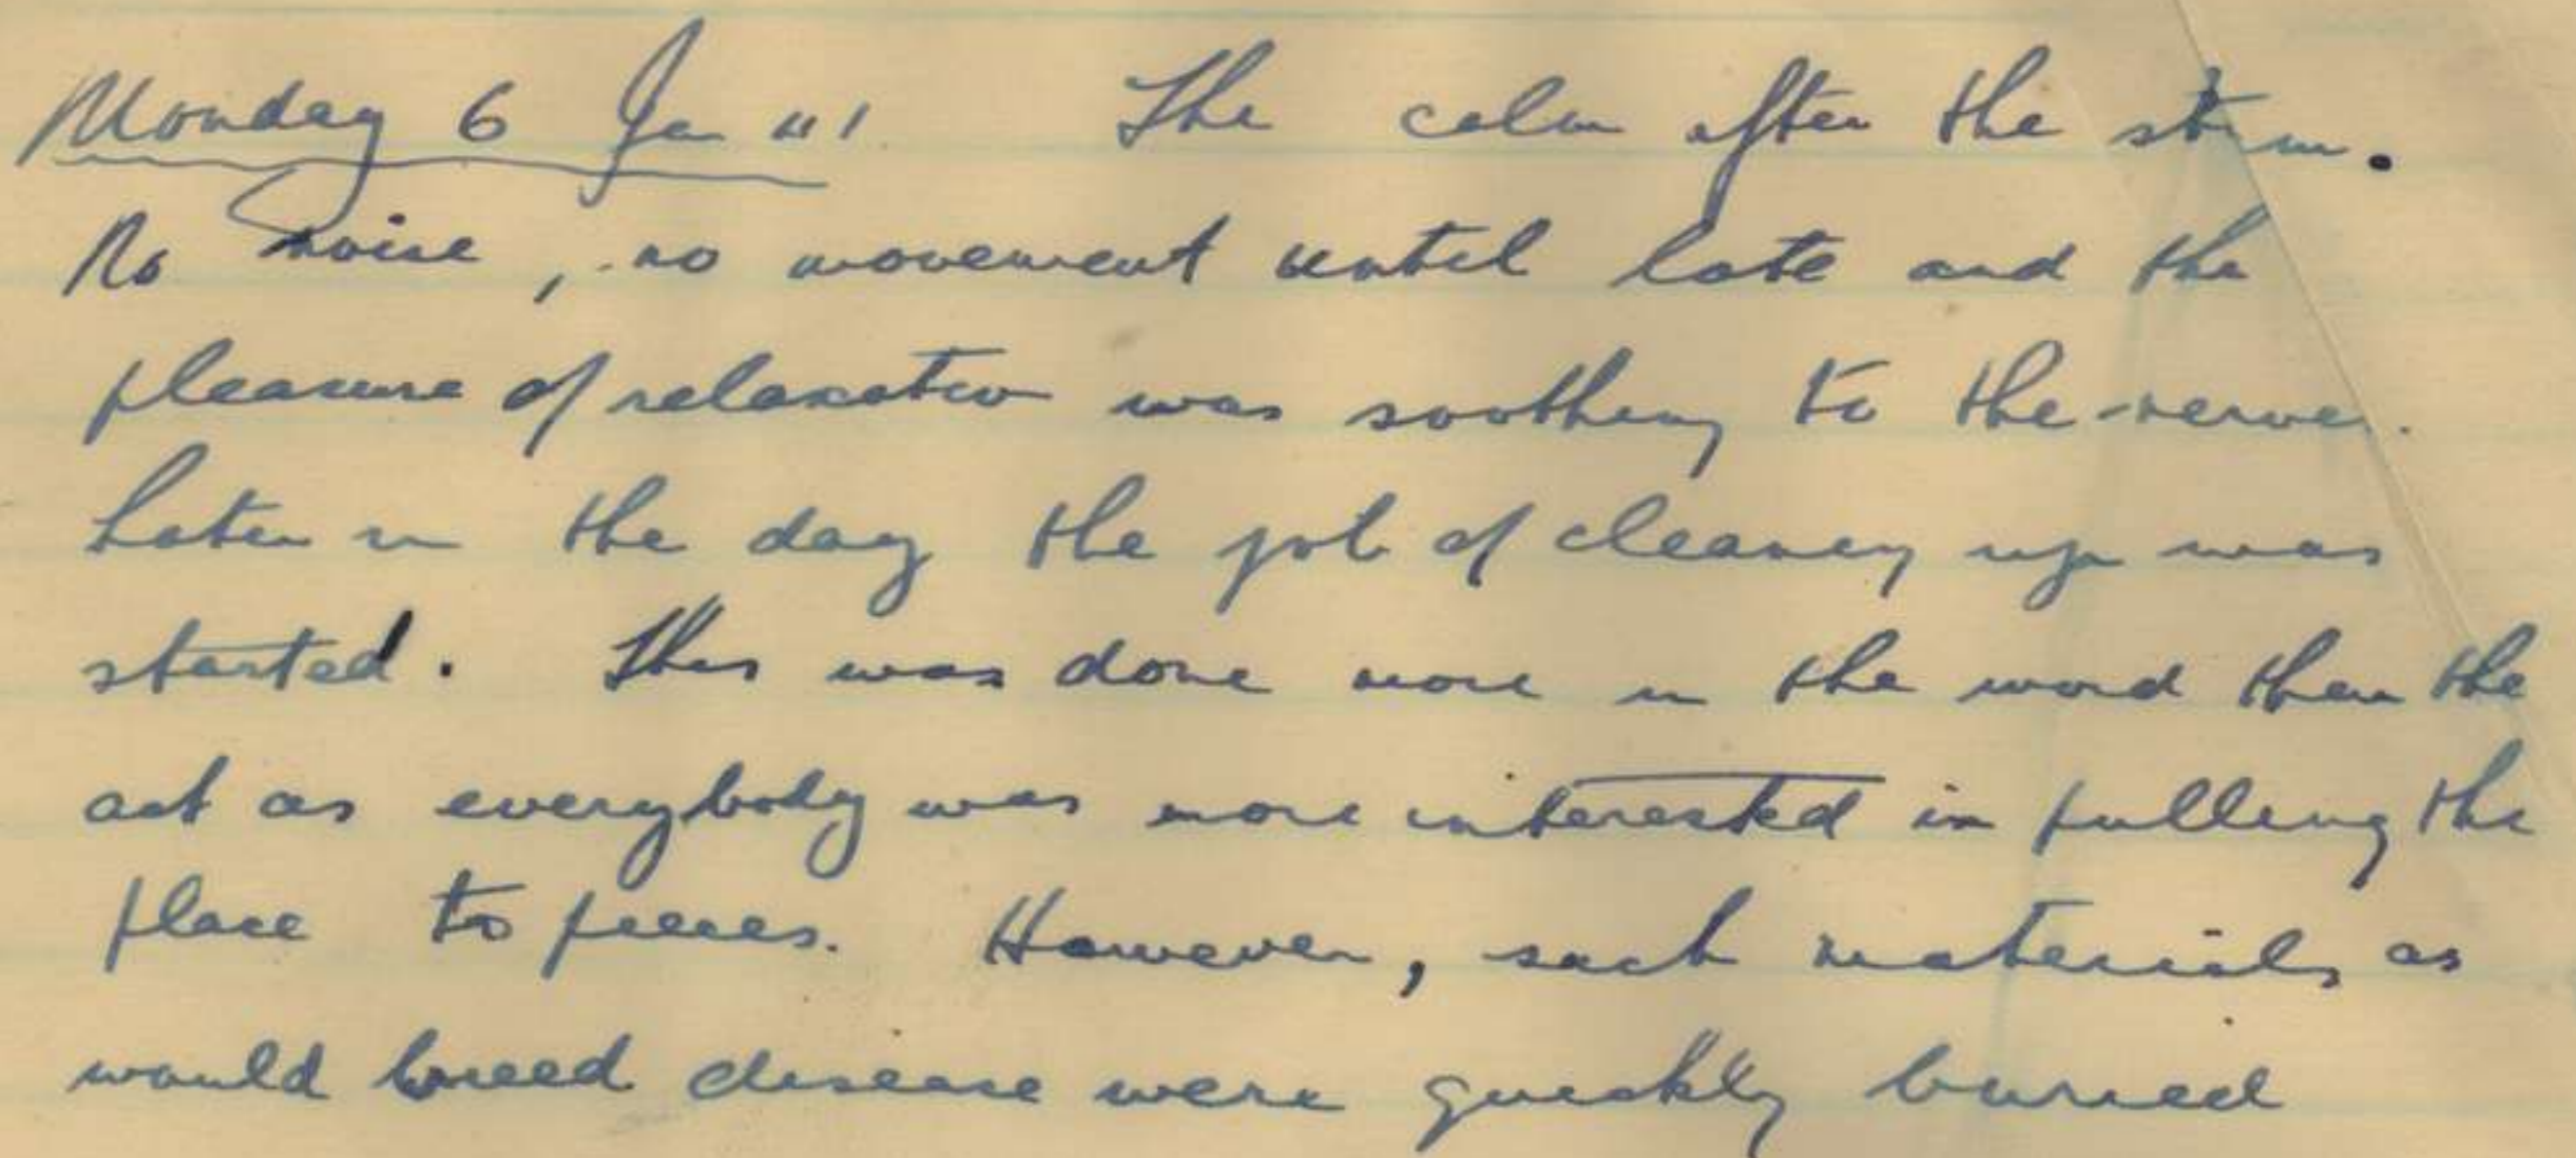 Monday 6 Jan 41 The calm after the storm.
No noise, no movement until late and the
pleasure of relaxation was soothing to the nerves.
Later in the day the job of cleaning up was
started. This was done more in the word than the
act as everybody was more interested in pulling the
place to pieces. However, such materials as
would breed disease were quickly buried